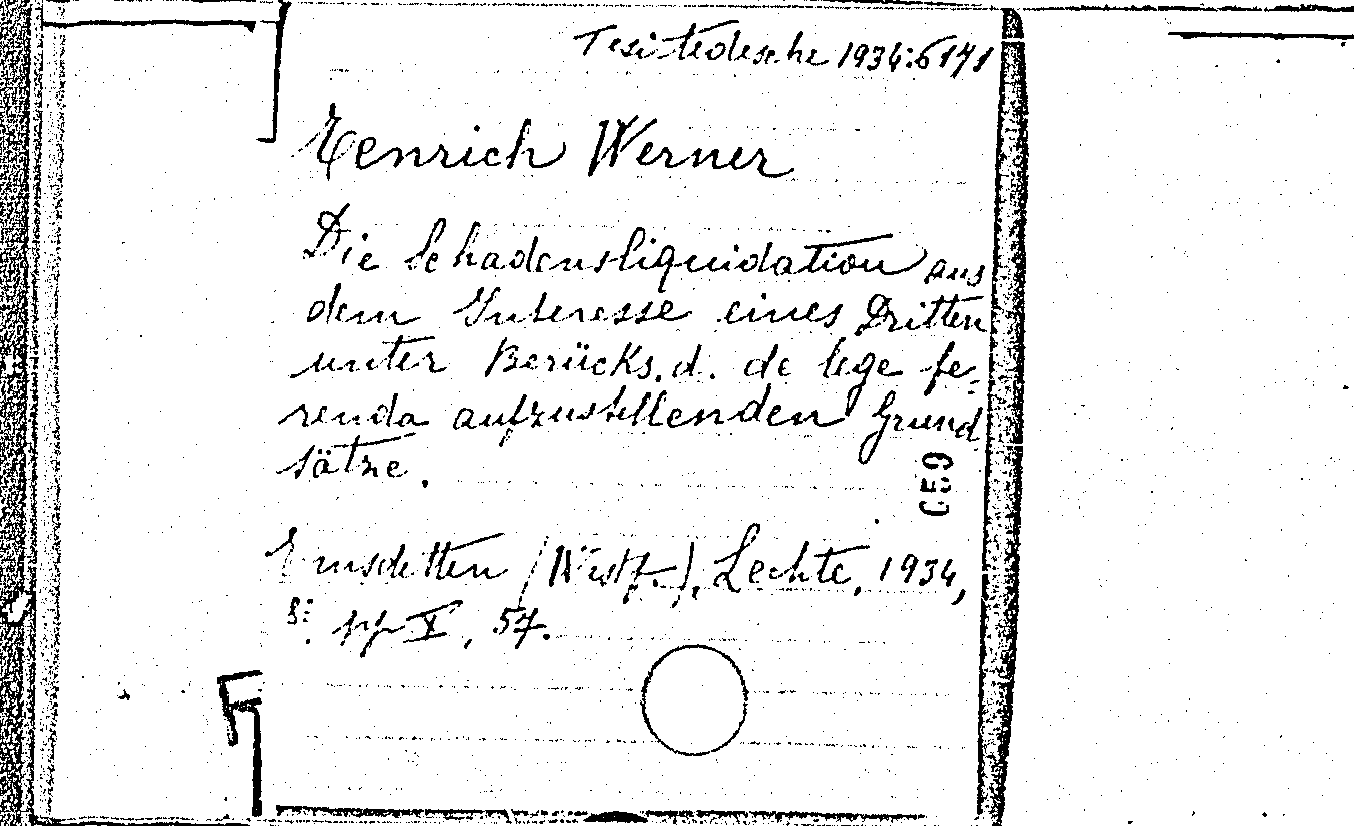 Tesi tedesche 1934:6171
Henrich Werner
Die Schadensliquidation aus
dem Interesse eines Dritten
unter Berücks. d. de lege fe-
renda aufzustellenden Grund
sätze.
059
Emsdetten (Westf.), Lechte, 1934,
8º. pp X, 57.